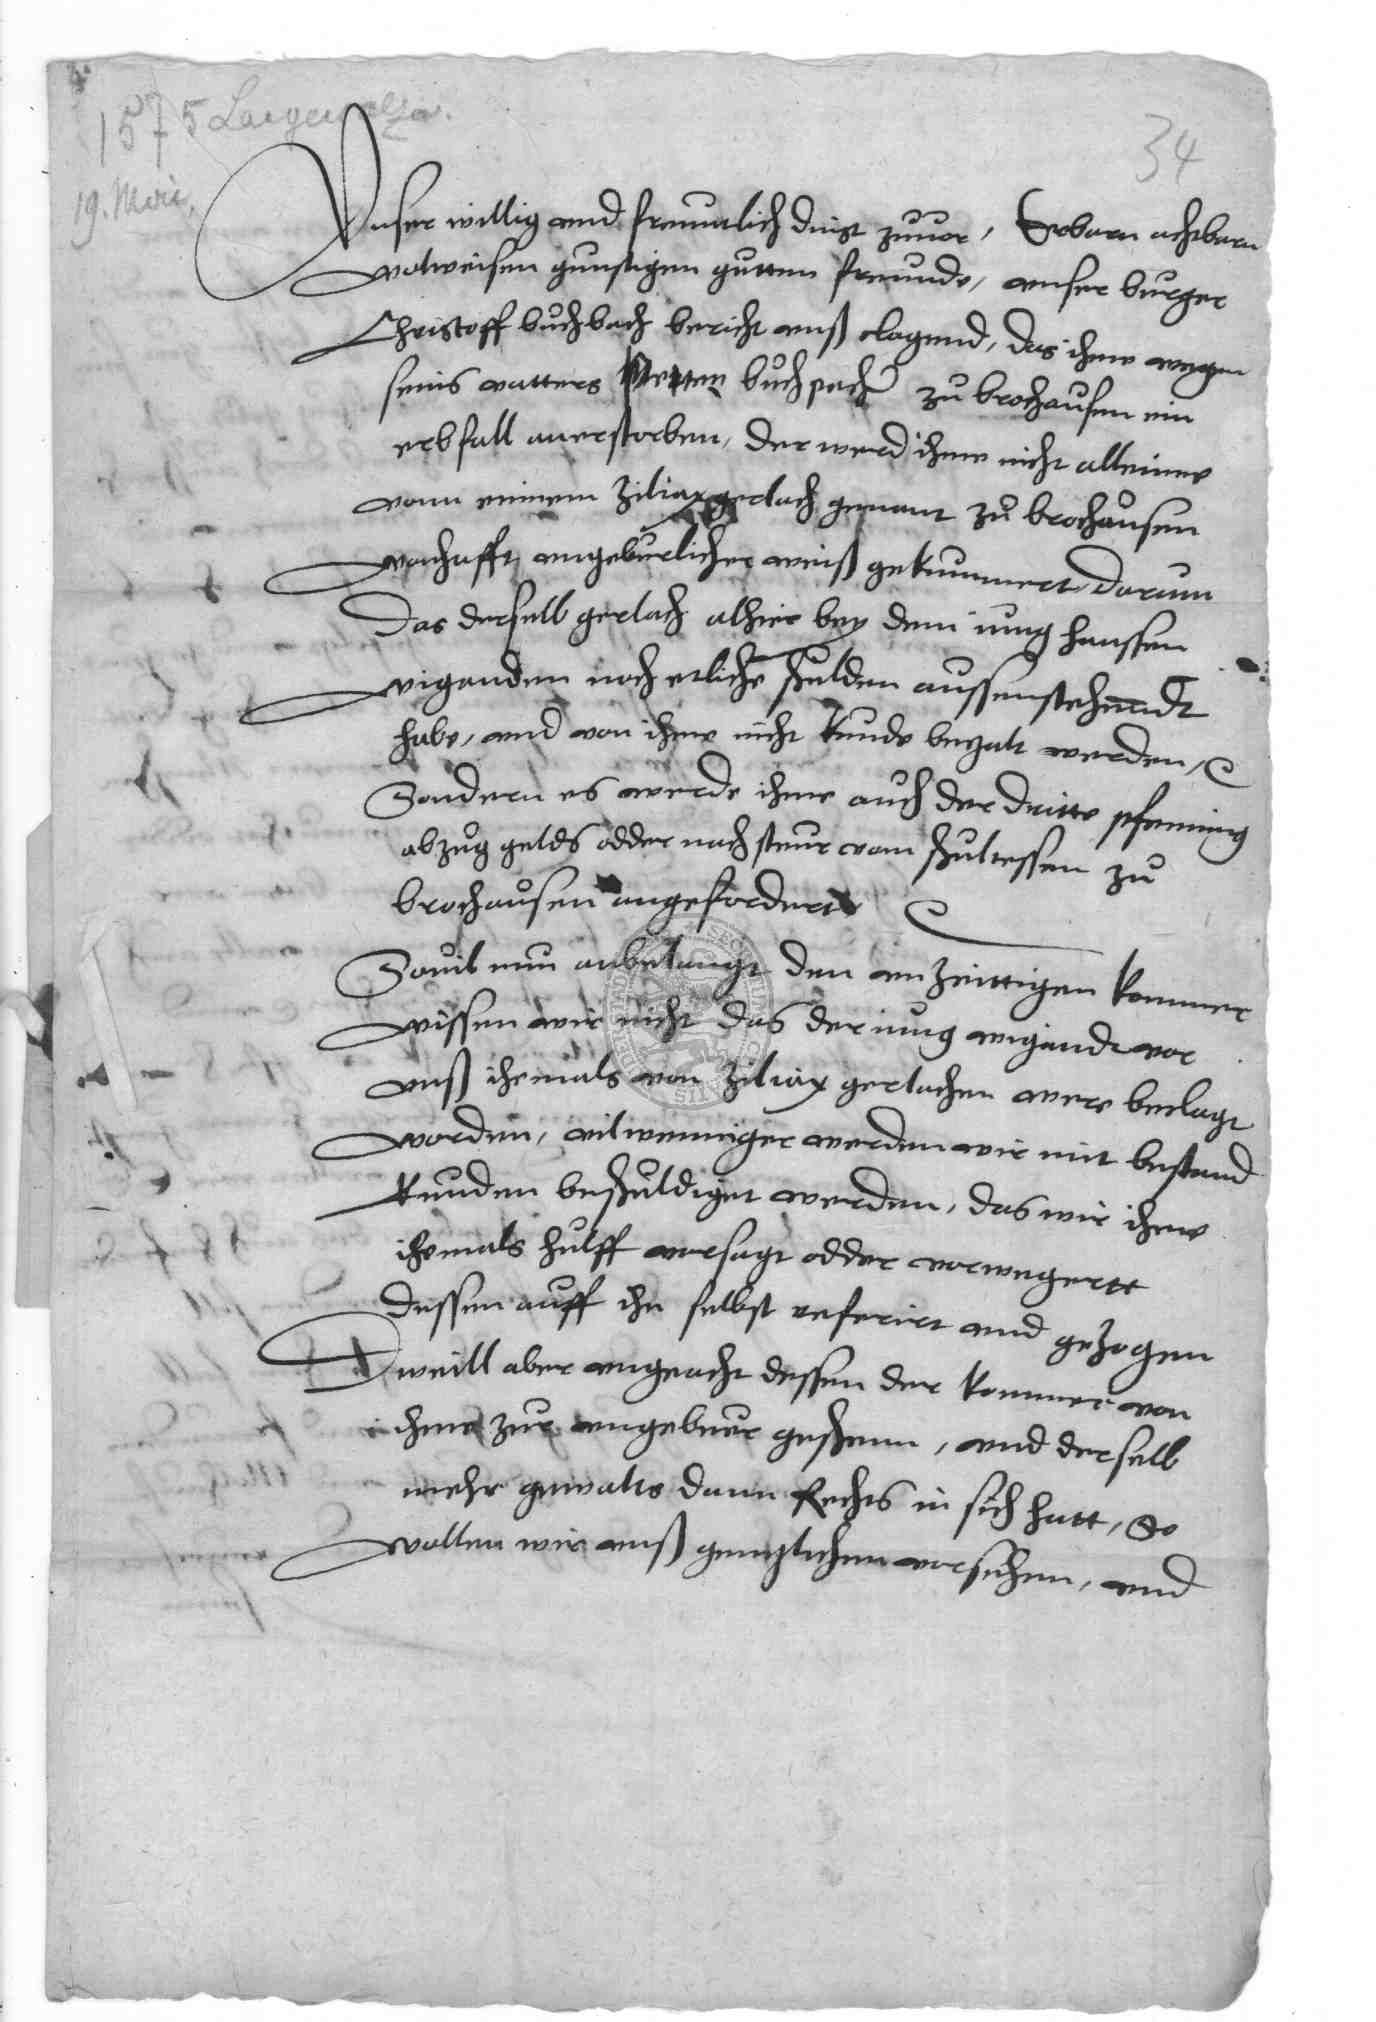 1575 Langensalza.
34
19. Mai.
Vnser willig vnd freuntlich dinst zuuor, Erbarn achtbarn
wolweisen gunstigen gutten freunde, vnser burger
Christoff buchbach bericht vnß clagend, das ihme wegen
seins vatters buchpach zu brochausen ein
erbfall anerstorben, der werd ihme nicht alleine
vonn einem Ziliax gerlach genant zu brochausen
vorhafft, vngeburlicher weiß gekummert, Darum
Das derselb gerlach alhier bey dem jung Hanssen
wiganden noch etliche schulden aussenstehenndt
habe, vnd von ihme nicht kunde bezalt werden,
Sondern es werde ihme auch der dritte pfenning
abzug gelds odder nach steur vom schultessen zu
brochausen angefordert
Souil nun anbelangt den vnzeittigen kommer
wissen wir nicht das der jung wigandt vor
vnß ihemals von Ziliax gerlachen were beclagt
worden, vilweniger werden wir mit bestand
kunden beschuldiget werden, das wir ihme
ihemals hulff vorsagt odder vorwegertt
dessen auff ihn selbst referirt vnd gezogen
Dweill aber vngeacht dessen der kommer von
ihme zur vngebuer geschenn, vnd derselb
mehr gewalts dann Rechts in sich hatt, So
wollen wir vnß gentzlichen vorsehen, vnd